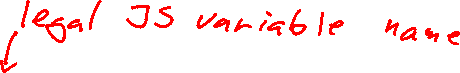 legal JS variable name